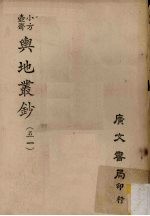 小方壺齋
輿地叢鈔
(五一)
廣文書局印行